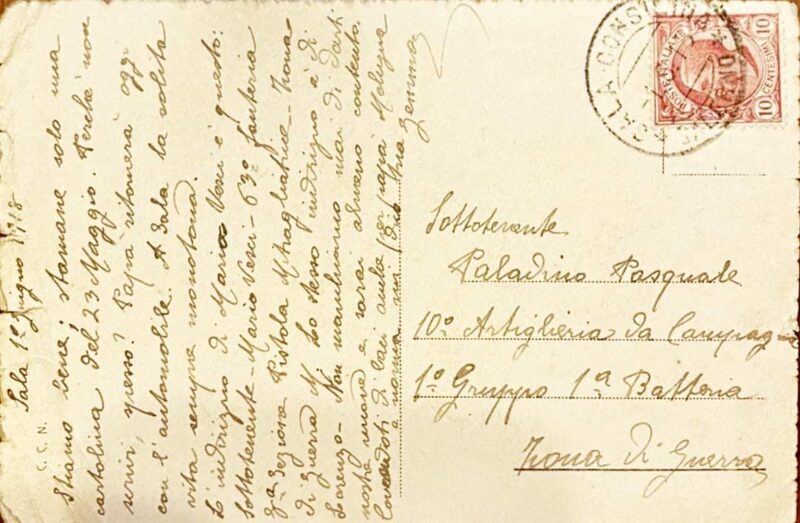 Sala 1º Giugno 1918
Stiamo bene; stamane solo una
cartolina del 23 Maggio. Perchè non
scrivi spesso? Papà ritornerà oggi
con l'automobile. A Sala la solita
vita sempre monotona.
L'indirizzo di Mario Vesci è questo:
Sottotenente - Mario Vesci - 63º fanteria
2ª Sezione Pistola Mitragliatrice - Zona
di guerra. Lo stesso indirizzo è di
Lorenzo - Non manchiamo mai di darti
nostre nuove e sarai almeno contento.
di baci anche per papà
e nonna mi dico tua
Gemma
C. C. N.
SALA CONSILINA
POSTE ITALIANE
10 10
CENTESIMI
Sottotenente
Paladino Pasquale
10º Artiglieria da Campagna
1º Gruppo 1ª Batteria
Zona di Guerra